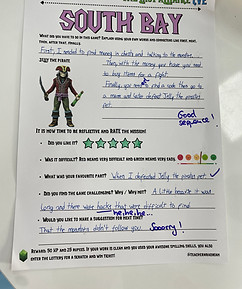 SOUTH BAY
WHAT DID YOU HAVE TO DO IN THIS GAME? EXPLAIN USING YOUR OWN WORDS AND CONNECTORS LIKE FIRST, NEXT, THEN, AFTER THAT, FINALLY.
First, I needed to find money in chests and talking to the monsters.
JELLY THE PIRATE
Then, with the money you have, you need
to buy items for a fight.
Finally, you need to find a rock then go to
a mom and later defeat Jelly the pirate's
pet.
Good
sequence!
IT IS NOW TIME TO BE REFLECTIVE AND RATE THE MISSION!
DID YOU LIKE IT?
WAS IT DIFFICULT? RED MEANS VERY DIFFICULT AND GREEN MEANS VERY EASY.
WHAT WAS YOUR FAVOURITE PART? When I defeated Jelly's pet.
DID YOU FIND THE GAME CHALLENGING? WHY / WHY NOT? A little because it was
long and there were hacks that were difficult to find.
he, he, he...
WOULD YOU LIKE TO MAKE A SUGGESTION FOR NEXT TIME?
That the monsters didn't follow you. Sooorry!
REWARD: 50 XP AND 25 POINTS. IF YOUR WORK IS CLEAN AND YOU USED YOUR AWESOME SPELLING SKILLS, YOU ALSO
ENTER THE LOTTERY FOR A SCRATCH AND WIN TICKET!